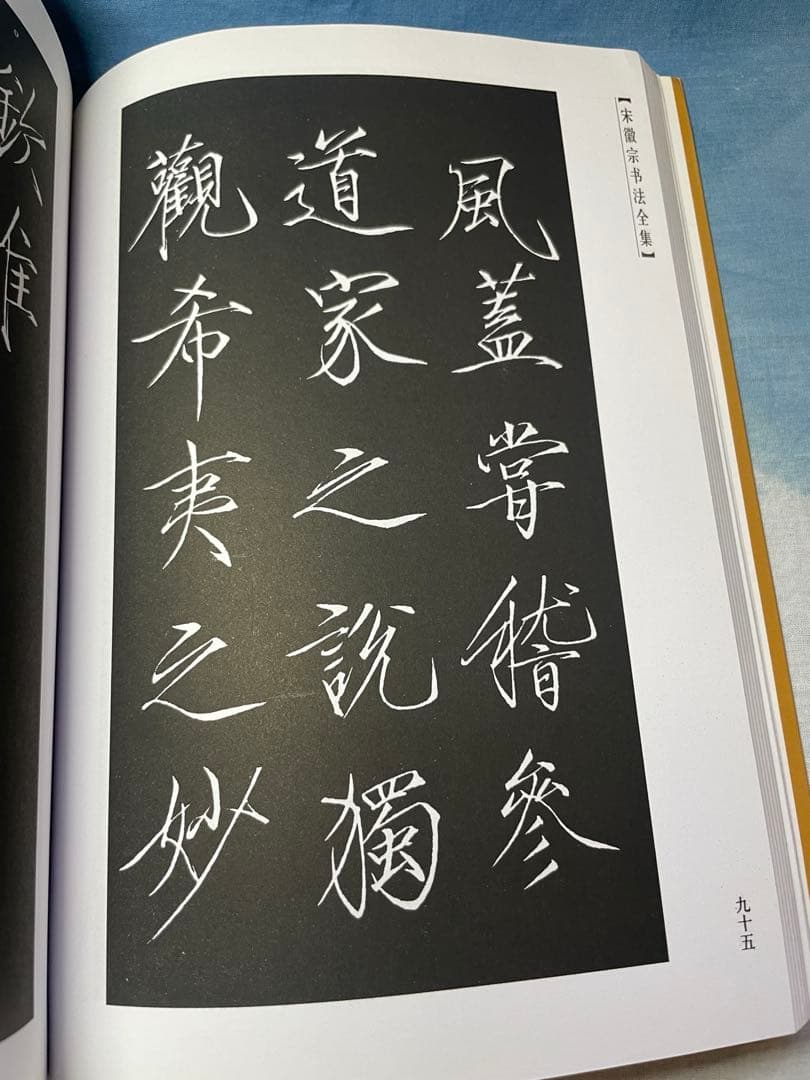 【宋徽宗书法全集】
風蓋嘗稽參
道家之說獨
觀希夷之妙
九十五